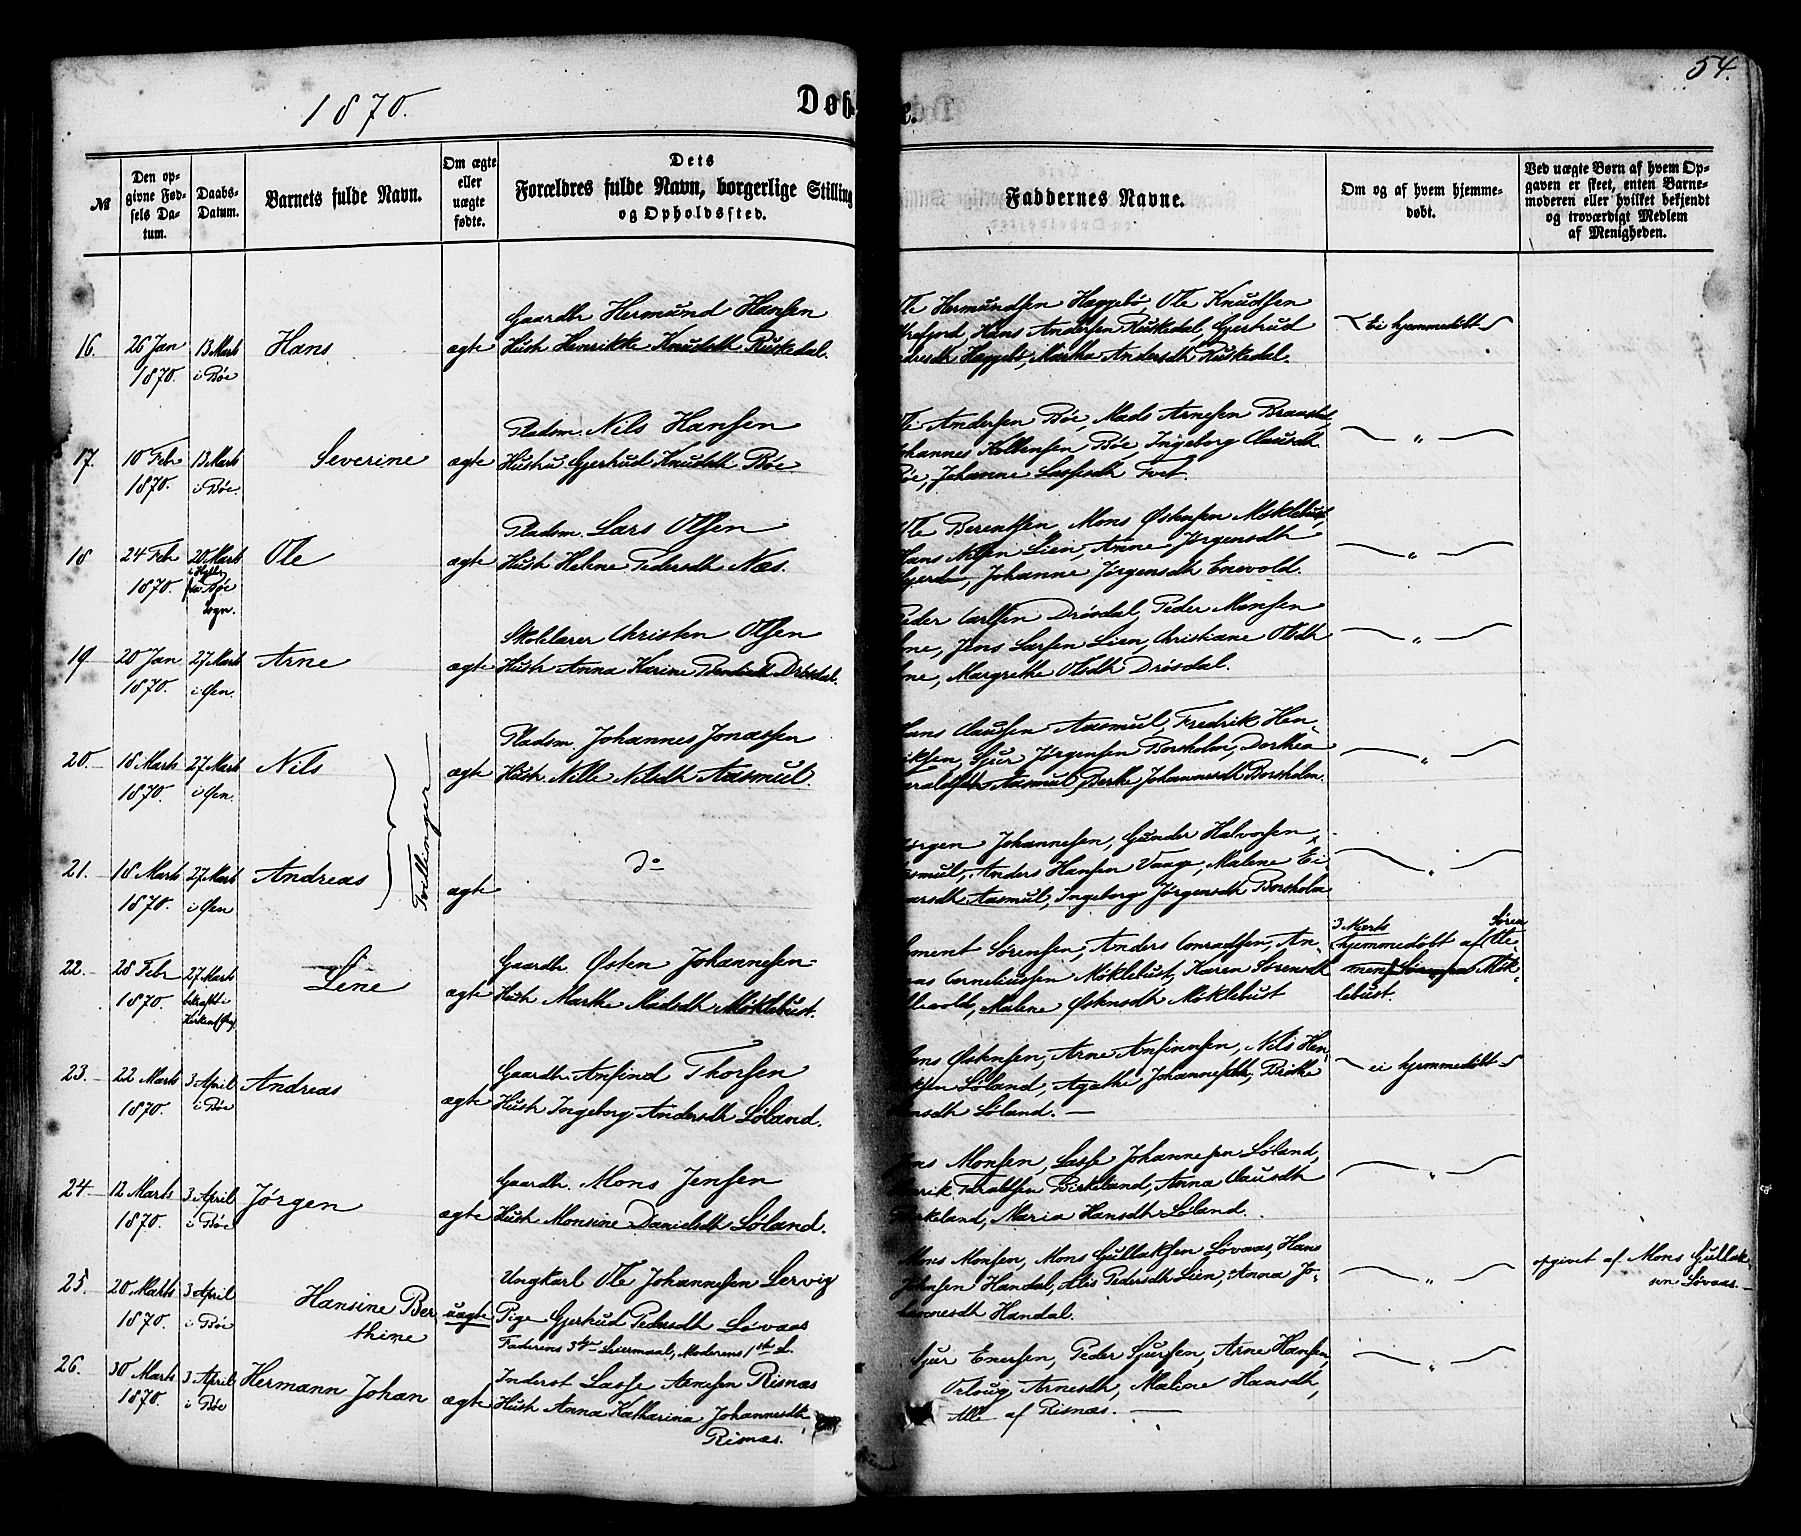 54.
1870.
Døb e.
№
Den op-
givne Fød-
sels Da-
tum.
Daabs-
Datum.
Barnets fulde Navn.
Om ægte
eller
uægte
fødte.
Dets
Forældres fulde Navn, borgerlige Stilling
og Opholdssted.
Faddernes Navne.
Om og af hvem hjemme-
døbt.
Ved uægte Børn af hvem Op-
gaven er skeet, enten Barne-
moderen eller hvilket bekjendt
og troværdigt Medlem
af Menigheden.
16. 26 Jan 1870. 13 Marts i Bøe Hans ægte
Gaardbr Hermund Hansen
Hustr Henrikke Knudsdtr Ruskedal.
Ole Hermundsen Haggebø, Ole Knudsen
Hans Andersen Ruskedal, Gjertrud
Haggebø, Martha Andersdtr Ruskedal.
Ei hjemmedøbt
17. 10 Febr 1870. 13 Marts i Bøe. Severine ægte
Pladsm. Nils Hansen
Hustru Gjertrud Knudsdtr Bøe
Ole Andersen Bøe, Mads Arnesen
Johannes Kolbensen Bøe, Ingeborg Clausdtr
Bøe, Johanne Lassesdtr Tvet.
"
18 24 Febr 1870. 20 Marts Bøe Sogn. Ole ægte
Pladsm. Lars Olsen
Hustr Helene Pedersdtr Næs.
Ole Berentsen, Mons Østensen Møklebust,
Hans Nilsen Lien, Anne Jørgensdtr
Gjerde, Johanne Jørgensdtr Enevold.
"
19 20 Jan 1870. 27 Marts i Øen. Arne ægte
Skolelærer Christen Olsen
Hustr Anna Karine Drøsdal.
Peder Carlsen Drøsdal, Peder Monsen
Jens Larsen Lien, Christiane Olsdtr
Margrethe Olsdtr Drøsdal.
"
20. 18 Marts 1870. 27 Marts i Øen. Nils ægte
Tvillinger
Pladsm. Johannes Jonassen
Hustr Nille Nilsdtr Aasmul.
Hans Clausen Aasmul, Fredrik Hen-
riksen, Sjur Jørgensen Borsholm, Dorthea
Aasmul, Berthe Johannesdtr Borsholm.
"
21. 18 Marts 1870. 27 Marts i Øen Andreas ægte
do
Jørgen Johannesen, Gunder Halvorsen,
Aasmul, Anders Hansen Vaage, Malene Ei-
narsdtr Aasmul, Ingeborg Jørgensdtr Borsholm
"
22. 28 Febr 1870. 27 Marts bekræftet Kirken Øen Lene ægte
Gaardbr. Østen Johannesen
Hustr Marthe Madsdtr Møklebust.
Clement Sørensen, Anders Conradsen, An-
dreas Corneliussen Møklebust, Karen Sørensdtr
Malene Østensdtr Møklebust
3 Marts
hjemmedøbt af Søren
Møk-
lebust.
23. 22 Marts 1870. 3 April i Bøe Andreas ægte
Gaardbr. Anfind Thorsen
Hustr Ingeborg Andersdtr Løland.
Mons Østensen, Arne Anfinnsen, Nils Hen-
riksen Løland, Agathe Johannesdtr, Birthe
Hansdtr Løland.
ei hjemmedøbt
24 12 Marts 1870. 3 April i Bøe Jørgen ægte
Gaardbr. Mons Jensen
Hustr Monsine Danielsdtr Løland.
Jens Monsen, Lasse Johannesen Løland,
Henrik Taraldsen Birkeland, Anna Clausdtr
Birkeland, Maria Hansdtr Løland.
"
25. 20 Marts 1870. 3 April i Bøe Hansine Ber-
thine uægte
Ungkarl Ole Johannesen Lervig
Pige Gjertrud Pedersdtr Løvaas
Faderens 3die Leiermaal, Moderens 1ste L.
Mons Monsen, Mons Gullaksen Løvaas, Hans
Johnsen Handal, Alis Pedersdtr Lien, Anna Jo-
hannesdtr Handal.
"
opgivet af Mons Gullak-
sen Løvaas.
26. 30 Marts 1870. 3 April i Bøe Hermann Johan ægte
Inderst Lasse Arnesen Risnæs
Hustr Anna Katharina Johannesdtr,
Risnæs.
Sjur Enersen, Peder Sjursen, Arne Hansen,
Orloug Arnesdtr, Maline Hansdtr,
Alle af Risnæs.
"